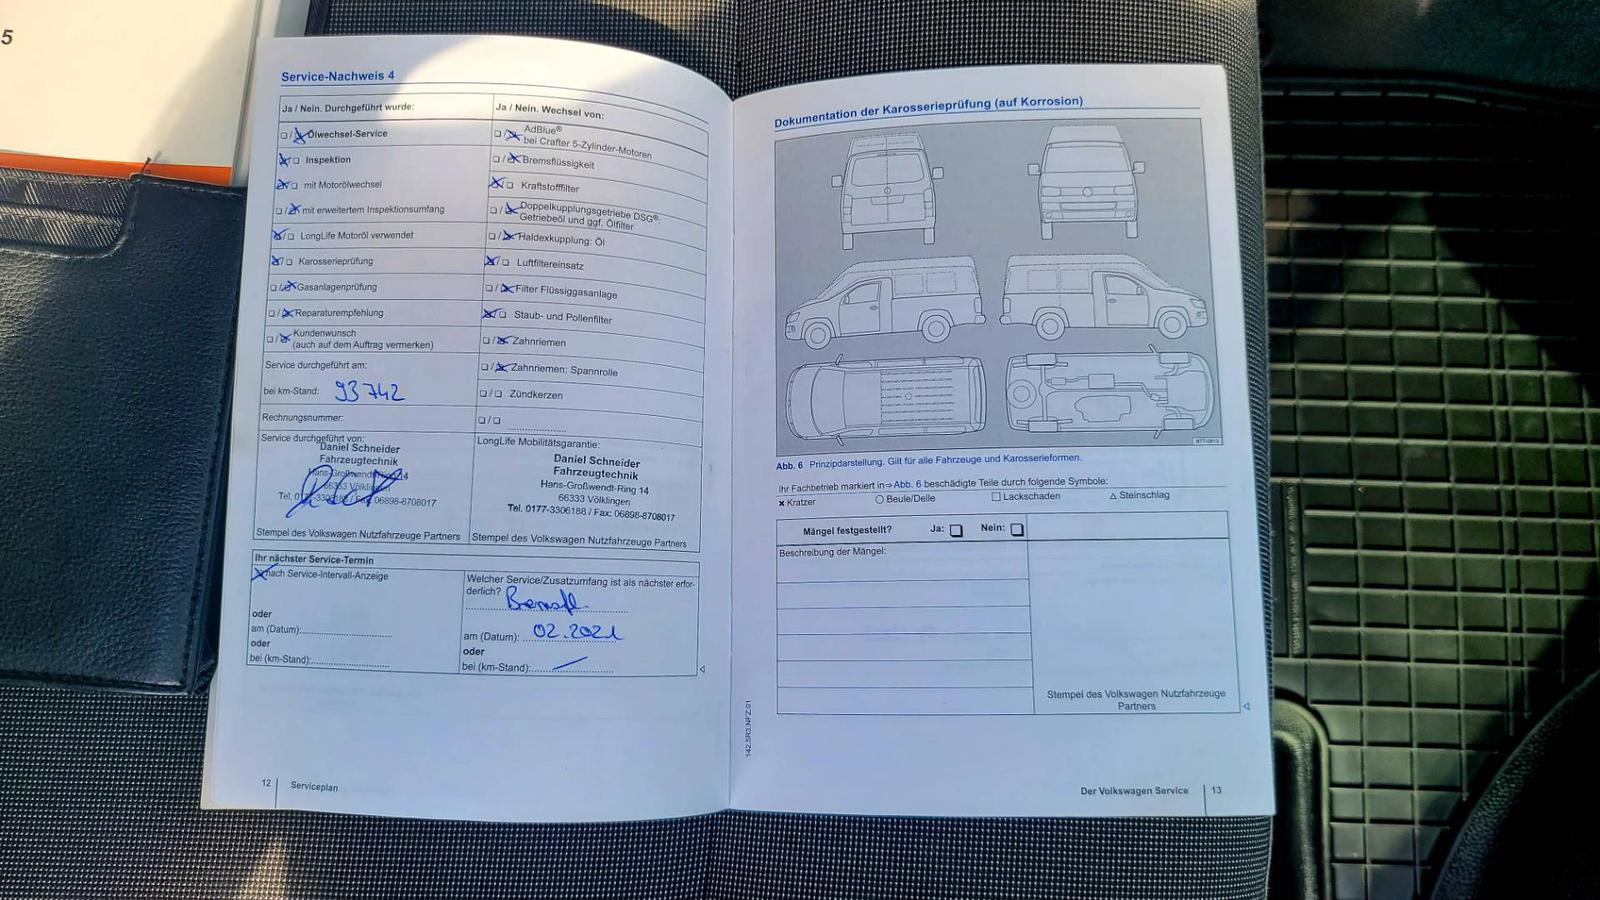 5
Service-Nachweis 4
Ja / Nein. Durchgeführt wurde:
❏ / ❏ Ölwechsel-Service
❏ / ❏ Inspektion
❏ / ❏ mit Motorölwechsel
❏ / ❏ mit erweitertem Inspektionsumfang
❏ / ❏ LongLife Motoröl verwendet
❏ / ❏ Karosserieprüfung
❏ / ❏ Gasanlagenprüfung
❏ / ❏ Reparaturempfehlung
❏ / ❏ Kundenwunsch
(auch auf dem Auftrag vermerken)
Service durchgeführt am:
bei km-Stand: 93742
Rechnungsnummer:
Service durchgeführt von:
Daniel Schneider
Fahrzeugtechnik
Hans-Großwendt-Ring 14
66333 Völklingen
Tel. 0177-3306188 / Fax: 06898-8708017
Stempel des Volkswagen Nutzfahrzeuge Partners
Ja / Nein. Wechsel von:
❏ / ❏ AdBlue®
bei Crafter 5-Zylinder-Motoren
❏ / ❏ Bremsflüssigkeit
❏ / ❏ Kraftstofffilter
❏ / ❏ Doppelkupplungsgetriebe DSG®:
Getriebeöl und ggf. Ölfilter
❏ / ❏ Haldexkupplung: Öl
❏ / ❏ Luftfiltereinsatz
❏ / ❏ Filter Flüssiggasanlage
❏ / ❏ Staub- und Pollenfilter
❏ / ❏ Zahnriemen
❏ / ❏ Zahnriemen: Spannrolle
❏ / ❏ Zündkerzen
❏ / ❏
LongLife Mobilitätsgarantie:
Daniel Schneider
Fahrzeugtechnik
Hans-Großwendt-Ring 14
66333 Völklingen
Tel. 0177-3306188 / Fax: 06898-8708017
Stempel des Volkswagen Nutzfahrzeuge Partners
Ihr nächster Service-Termin
nach Service-Intervall-Anzeige
oder
am (Datum):
oder
bei (km-Stand):
Welcher Service/Zusatzumfang ist als nächster erfor-
derlich?
am (Datum): 02.2021
oder
bei (km-Stand):
12 Serviceplan
Dokumentation der Karosserieprüfung (auf Korrosion)
B7T-0913
Abb. 6 Prinzipdarstellung. Gilt für alle Fahrzeuge und Karosserieformen.
Ihr Fachbetrieb markiert in⇒Abb. 6 beschädigte Teile durch folgende Symbole:
× Kratzer ○ Beule/Delle □ Lackschaden △ Steinschlag
Mängel festgestellt? Ja: ❏ Nein: ❏
Beschreibung der Mängel:
Stempel des Volkswagen Nutzfahrzeuge
Partners
142.5R3.NFZ.01
Der Volkswagen Service 13